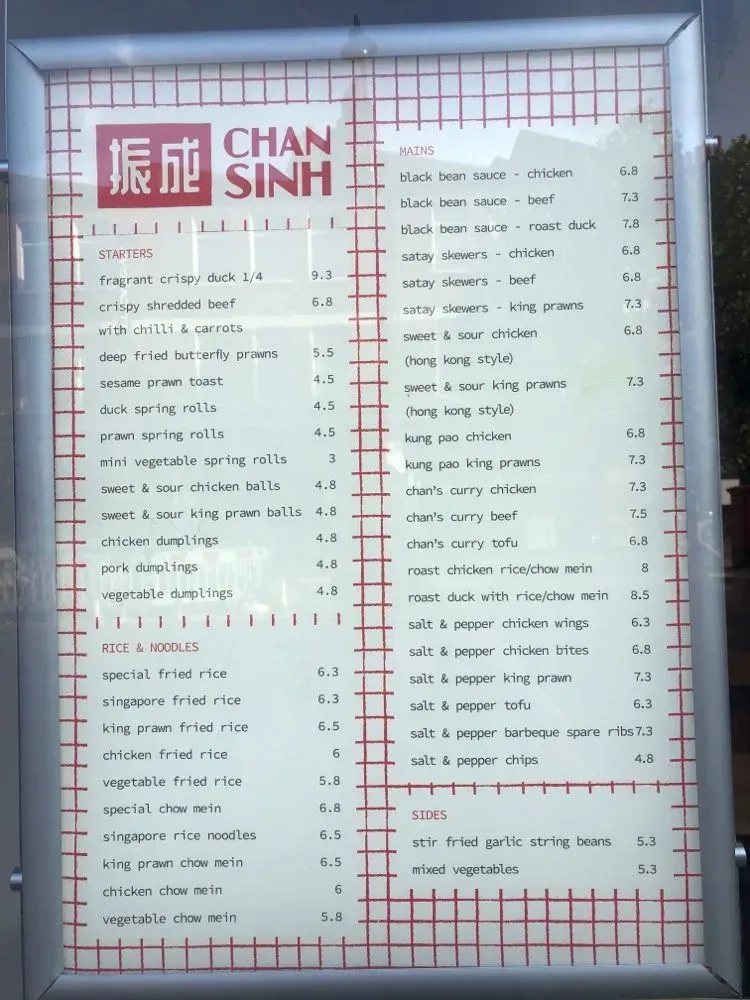 振成
CHAN
SINH
STARTERS
fragrant crispy duck 1/4 9.3
crispy shredded beef 6.8
with chilli & carrots
deep fried butterfly prawns 5.5
sesame prawn toast 4.5
duck spring rolls 4.5
prawn spring rolls 4.5
mini vegetable spring rolls 3
sweet & sour chicken balls 4.8
sweet & sour king prawn balls 4.8
chicken dumplings 4.8
pork dumplings 4.8
vegetable dumplings 4.8
RICE & NOODLES
special fried rice 6.3
singapore fried rice 6.3
king prawn fried rice 6.5
chicken fried rice 6
vegetable fried rice 5.8
special chow mein 6.8
singapore rice noodles 6.5
king prawn chow mein 6.5
chicken chow mein 6
vegetable chow mein 5.8
MAINS
black bean sauce - chicken 6.8
black bean sauce - beef 7.3
black bean sauce - roast duck 7.8
satay skewers - chicken 6.8
satay skewers - beef 6.8
satay skewers - king prawns 7.3
sweet & sour chicken 6.8
(hong kong style)
sweet & sour king prawns 7.3
(hong kong style)
kung pao chicken 6.8
kung pao king prawns 7.3
chan's curry chicken 7.3
chan's curry beef 7.5
chan's curry tofu 6.8
roast chicken rice/chow mein 8
roast duck with rice/chow mein 8.5
salt & pepper chicken wings 6.3
salt & pepper chicken bites 6.8
salt & pepper king prawn 7.3
salt & pepper tofu 6.3
salt & pepper barbeque spare ribs 7.3
salt & pepper chips 4.8
SIDES
stir fried garlic string beans 5.3
mixed vegetables 5.3